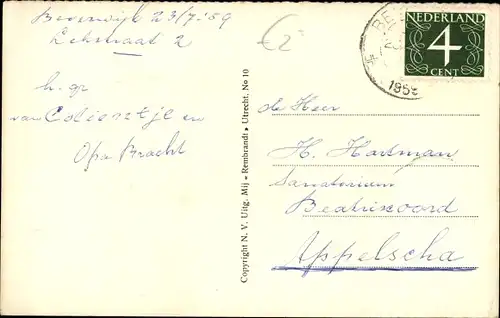 Beverwijk 23/7 '59
2
h. gr
van en
Opa Bracht
€2
Copyright N. V. Uitg. Mij – Rembrandt • Utrecht. No 10
BE
1959
NEDERLAND
4
CENT
de Heer
H. Hartman
Sanatorium
Beatrixoord
Appelscha